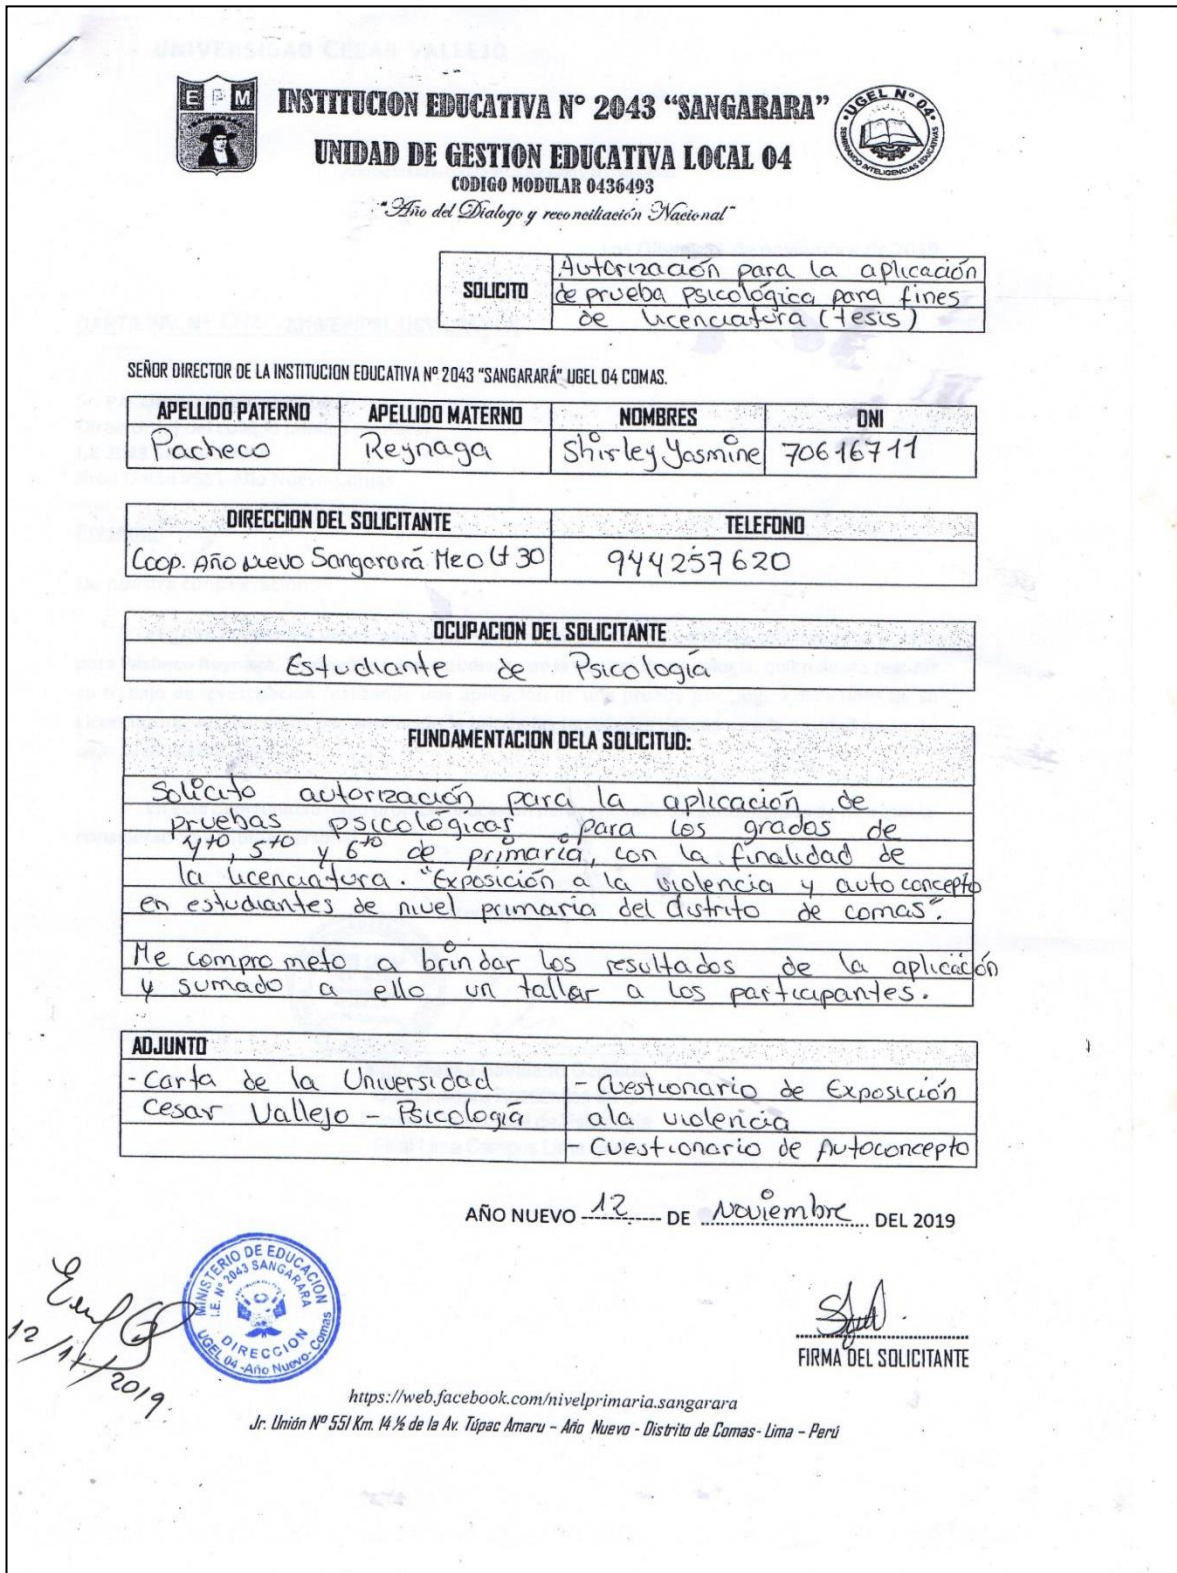 UNIVERSIDAD CESAR VALLEJO
E P M
INSTITUCION EDUCATIVA N° 2043 “SANGARARA”
UGEL N° 04
SEMBRANDO INTELIGENCIAS EDUCATIVAS
UNIDAD DE GESTION EDUCATIVA LOCAL 04
CODIGO MODULAR 0436493
“Año del Dialogo y reconciliación Nacional”
SOLICITO
Autorización para la aplicación
de prueba psicológica para fines
de licenciatura (tesis)
SEÑOR DIRECTOR DE LA INSTITUCION EDUCATIVA Nº 2043 “SANGARARÁ” UGEL 04 COMAS.
APELLIDO PATERNO APELLIDO MATERNO NOMBRES DNI
Pacheco Reynaga Shirley Yasmine 70616711
DIRECCION DEL SOLICITANTE TELEFONO
Coop. Año Nuevo Sangarará Mz O Lt 30 944257620
OCUPACION DEL SOLICITANTE
Estudiante de Psicología
FUNDAMENTACION DELA SOLICITUD:
Solicito autorización para la aplicación de
pruebas psicológicas para los grados de
4to, 5to y 6to de primaria, con la finalidad de
la licenciatura. “Exposición a la violencia y autoconcepto
en estudiantes de nivel primaria del distrito de comas”.
Me comprometo a brindar los resultados de la aplicación
y sumado a ello un taller a los participantes.
ADJUNTO
- Carta de la Universidad
Cesar Vallejo - Psicología
- Cuestionario de Exposición
ala violencia
- Cuestionario de Autoconcepto
AÑO NUEVO 12 DE Noviembre DEL 2019
MINISTERIO DE EDUCACION
I.E. N° 2043 SANGARARA
DIRECCION
UGEL 04 -Año Nuevo- Comas
12/11/2019.
FIRMA DEL SOLICITANTE
https://web.facebook.com/nivelprimaria.sangarara
Jr. Unión Nº 551 Km. 14 ½ de la Av. Túpac Amaru – Año Nuevo - Distrito de Comas- Lima – Perú